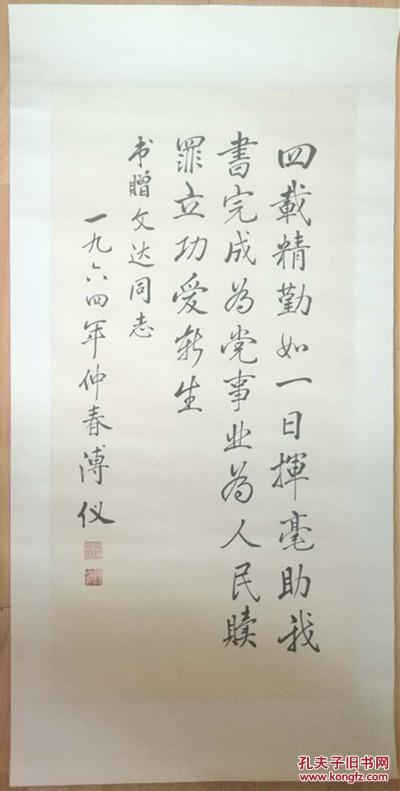 四载精勤如一日揮毫助我
書完成为党事业为人民贖
罪立功爱新生
书赠文达同志
一九六四年仲春溥仪
孔夫子旧书网